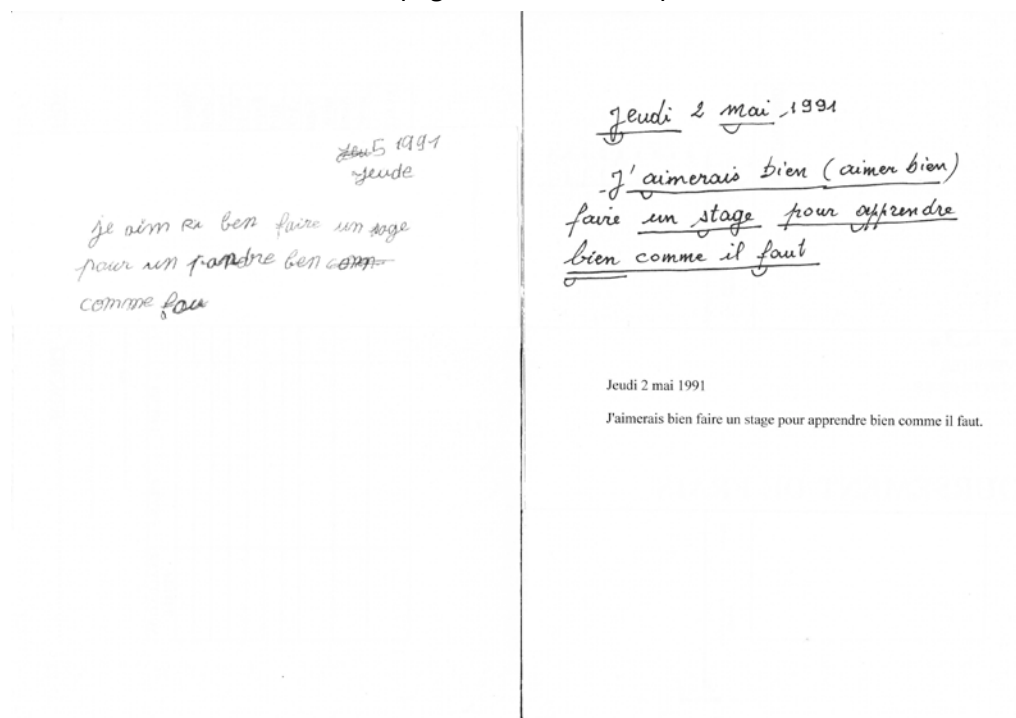 5 1991
Jeude
je aim Ra ben faire un soge
pour un pandre ben
comme fau
Jeudi 2 mai 1991
J'aimerais bien (aimer bien)
faire un stage pour apprendre
bien comme il faut
Jeudi 2 mai 1991
J'aimerais bien faire un stage pour apprendre bien comme il faut.